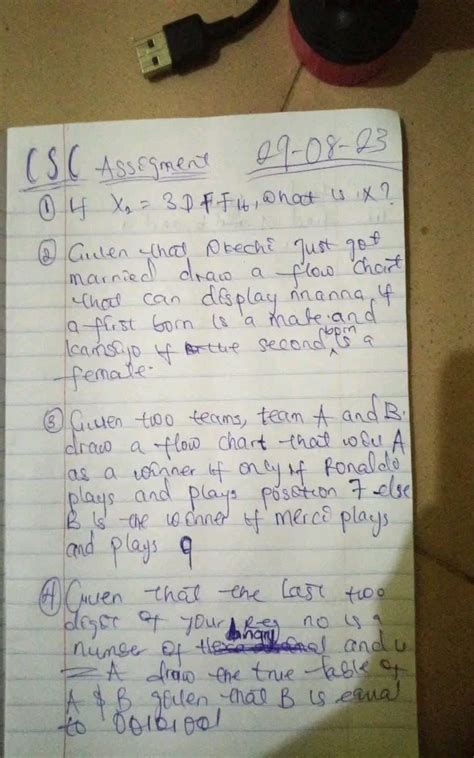 CSC Assignment 29-08-23
① If X₂ = 3DFF₁₆, what is X?
② Given that Okechi just got
married draw a flow chart
that can display nnanna if
a first born is a male and
if the second born is a
female.
③ Given two teams, team A and B.
draw a flow chart that A
as a winner if only if Ronaldo
plays and plays position 7 else
B is the winner if merci plays
and plays 9
④ Given that the last two
digit of your Reg no is a
number of angry and
= A draw the true table of
A & B given that B is equal
to 00101001